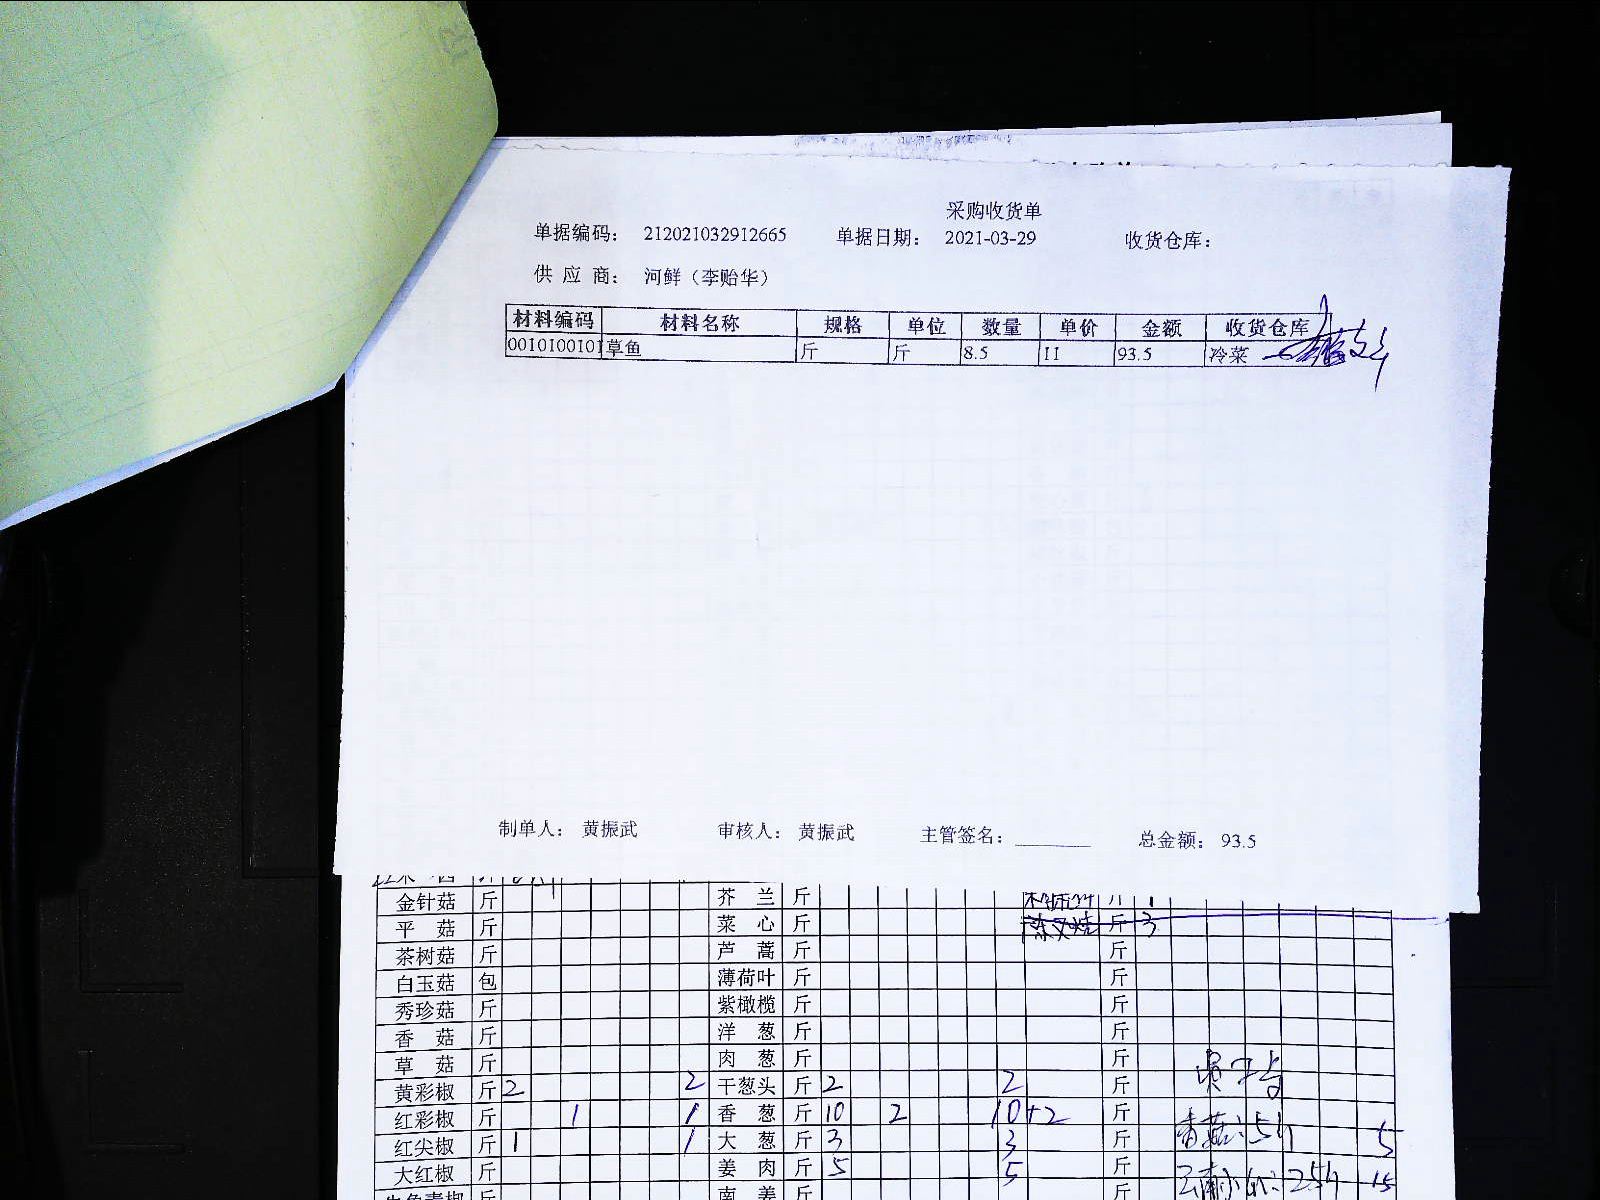 采购收货单
单据编码： 212021032912665 单据日期： 2021-03-29 收货仓库：
供 应 商： 河鲜（李贻华）
材料编码 材料名称 规格 单位 数量 单价 金额 收货仓库
0010100101 草鱼 斤 斤 8.5 11 93.5 冷菜
制单人： 黄振武 审核人： 黄振武 主管签名： 总金额： 93.5
金针菇 斤 芥 兰 斤 斤
平 菇 斤 菜 心 斤 斤 3
茶树菇 斤 芦 蒿 斤 斤
白玉菇 包 薄荷叶 斤 斤
秀珍菇 斤 紫橄榄 斤 斤
香 菇 斤 洋 葱 斤 斤
草 菇 斤 肉 葱 斤 斤
黄彩椒 斤 2 2 干葱头 斤 2 2 斤
红彩椒 斤 1 1 香 葱 斤 10 2 10+2 斤
红尖椒 斤 1 1 大 葱 斤 3 3 斤 香菇 5 5
大红椒 斤 姜 肉 斤 5 5 斤 15
斤 南 姜 斤 斤